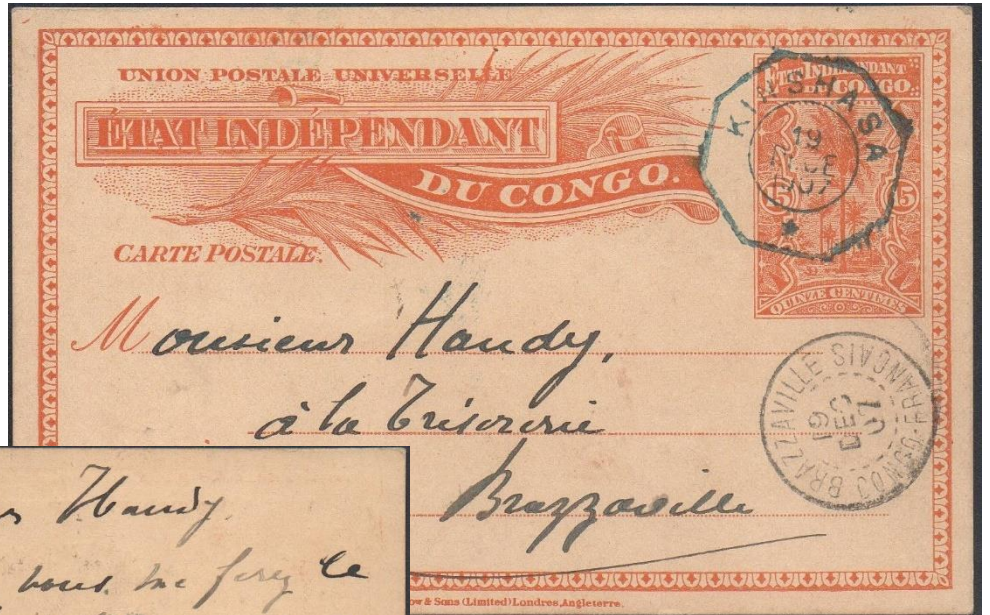 UNION POSTALE UNIVERSELLE
ÉTAT INDÉPENDANT
DU CONGO.
CARTE POSTALE.
ÉTAT INDÉPENDANT
DU CONGO.
15 15
QUINZE CENTIMES
KINSHASA
19
DEC
07
Monsieur Handy,
à la Trésorerie
Brazzaville
BRAZZAVILLE CONGO-FRANCAIS
19
DEC
07
Handy.
vous me ferez le
& Sons (Limited) Londres, Angleterre.